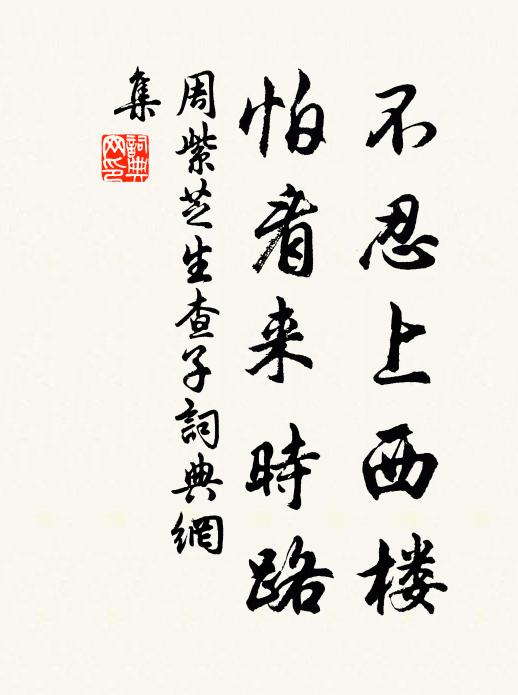 不忍上西楼
怕看来時路
周紫芝生查子詞典網
集
詞典网印